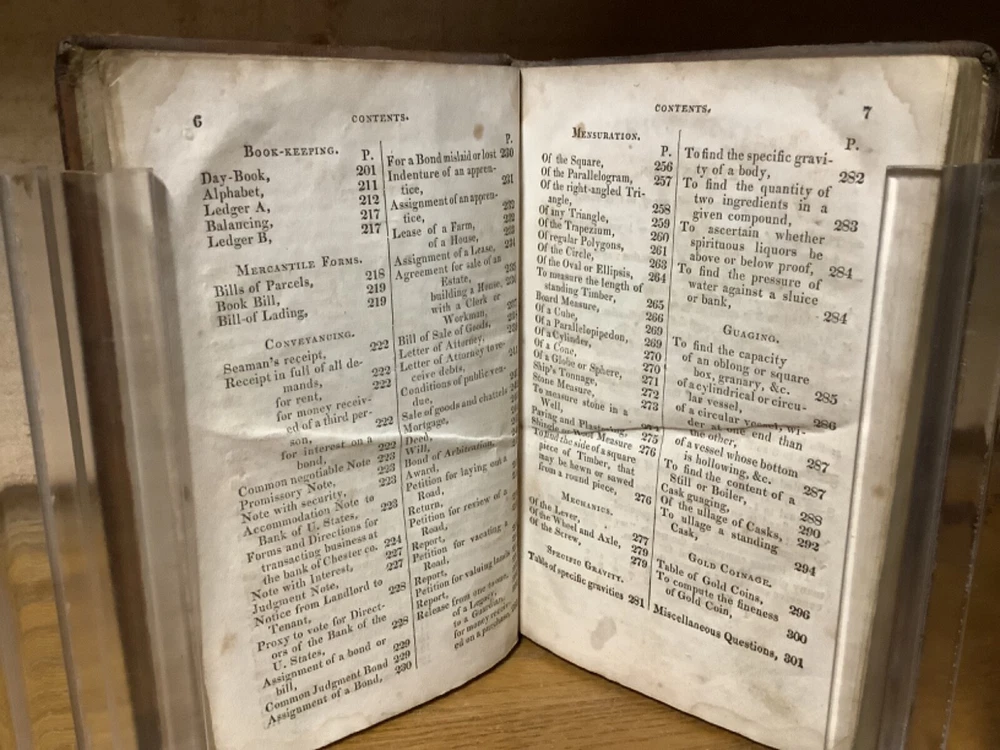 6
CONTENTS.
BOOK-KEEPING. P.
Day-Book, 201
Alphabet, 211
Ledger A, 212
Balancing, 217
Ledger B, 217
MERCANTILE FORMS.
Bills of Parcels, 218
Book Bill, 219
Bill-of Lading, 219
CONVEYANCING.
Seaman's receipt, 222
Receipt in full of all de-
mands, 222
for rent, 222
for money receiv-
ed of a third per-
son, 222
for interest on a
bond, 222
Common negotiable Note 223
Promissory Note, 223
Note with security,
Accommodation Note to
Bank of U. States, 223
Forms and Directions for
transacting business at
the bank of Chester co. 224
Note with Interest, 227
Judgment Note, 227
Notice from Landlord to
Tenant, 228
Proxy to vote for Direct-
ors of the Bank of the
U. States, 228
Assignment of a bond or
bill, 229
Common Judgment Bond 229
Assignment of a Bond, 230
P.
For a Bond mislaid or lost 230
Indenture of an appren-
tice, 231
Assignment of an appren-
tice, 232
Lease of a Farm, 232
of a House, 233
Assignment of a Lease, 234
Agreement for sale of an
Estate,
building a House,
with a Clerk or
Workman,
Bill of Sale of Goods,
Letter of Attorney,
Letter of Attorney to re-
ceive debts,
Conditions of public ven-
due,
Sale of goods and chattels
Mortgage,
Deed,
Will,
Bond of Arbitration,
Award,
Petition for laying out a
Road,
Return,
Petition for review of a
Road,
Report,
Petition for vacating a
Road,
Report,
Petition for valuing lands
Report,
Release from one to
of a Legacy,
to a Guardian,
for money receiv-
ed on a purchase,
CONTENTS.
7
MENSURATION.
P.
Of the Square, 256
Of the Parallelogram, 257
Of the right-angled Tri-
angle, 258
Of any Triangle, 259
Of the Trapezium, 260
Of regular Polygons, 261
Of the Circle, 263
Of the Oval or Ellipsis, 264
To measure the length of
standing Timber, 265
Board Measure, 266
Of a Cube, 269
Of a Parallelopipedon, 269
Of a Cylinder, 270
Of a Cone, 270
Of a Globe or Sphere, 271
Ship's Tonnage, 272
Stone Measure, 273
To measure stone in a
Well,
Paving and Plastering, 275
Shingle or Roof Measure 276
To find the side of a square
piece of Timber, that
may be hewn or sawed
from a round piece, 276
MECHANICS.
Of the Lever, 277
Of the Wheel and Axle, 279
Of the Screw, 279
SPECIFIC GRAVITY.
Table of specific gravities 281
P.
To find the specific gravi-
ty of a body, 282
To find the quantity of
two ingredients in a
given compound, 283
To ascertain whether
spirituous liquors be
above or below proof, 284
To find the pressure of
water against a sluice
or bank, 284
GUAGING.
To find the capacity
of an oblong or square
box, granary, &c. 285
of a cylindrical or circu-
lar vessel, 286
of a circular vessel, wi-
der at one end than
the other, 287
of a vessel whose bottom
is hollowing, &c. 287
To find the content of a
Still or Boiler, 288
Cask guaging, 290
Of the ullage of Casks, 292
To ullage a standing
Cask, 294
GOLD COINAGE.
Table of Gold Coins, 296
To compute the fineness
of Gold Coin, 300
Miscellaneous Questions, 301